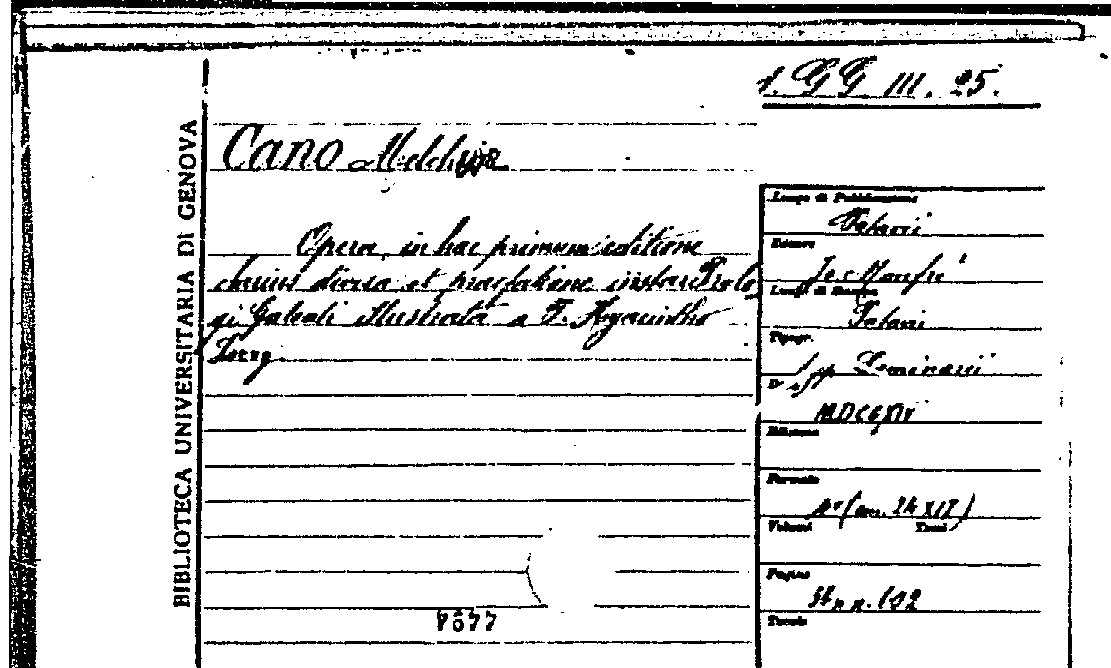 1. GG III. 25.
BIBLIOTECA UNIVERSITARIA DI GENOVA
Cano Melchior
Opera, in hac primum editione
clarius divisa et praefatione instar Prolo
gi Galeati illustrata a F. Hyacintho
Serry.
Luogo di Pubblicazione
Patavii
Editore
Jo: Manfrè
Luogo di Stampa
Patavii
Tipogr.
Typ. Seminarii
MDCCXIV
Edizione
Formato
4º (cm. 24x17)
Volumi Tomi
Pagine
Tavole